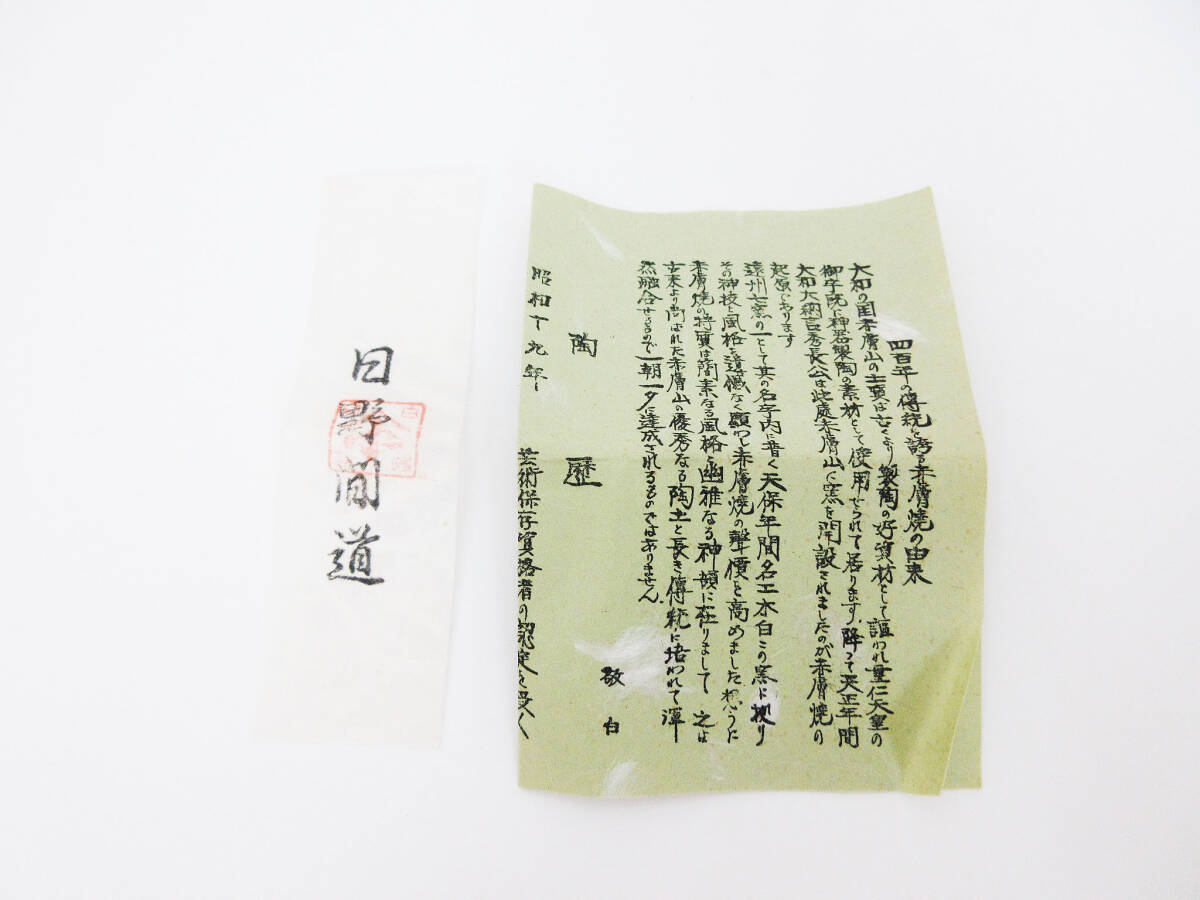 四百年の傳統に誇る赤膚焼の由来
大和の国赤膚山の土質は古くより製陶の好質材として謳われ垂仁天皇の
御字既に神器製陶の素材として使用せられて居ります、降つて天正年間
大和大納言秀長公は此處赤膚山に窯を開設されましたのが赤膚焼の
起原であります
遠州七窯の一として其の名宇内に普く天保年間名工木白この窯に拠り
その神技と風格を遺憾なく顕わし赤膚焼の聲價を高めました想うに
赤膚焼の特質は簡素なる風格と幽雅なる神韻に在りまして之は
古来より尚ばれた赤膚山の優秀なる陶土と長き傳統に培われて渾
然融合せるもので一朝一夕に達成されるものではありません。
敬白
陶歴
昭和十九年 芸術保存資格者の認定を受く
日野間道